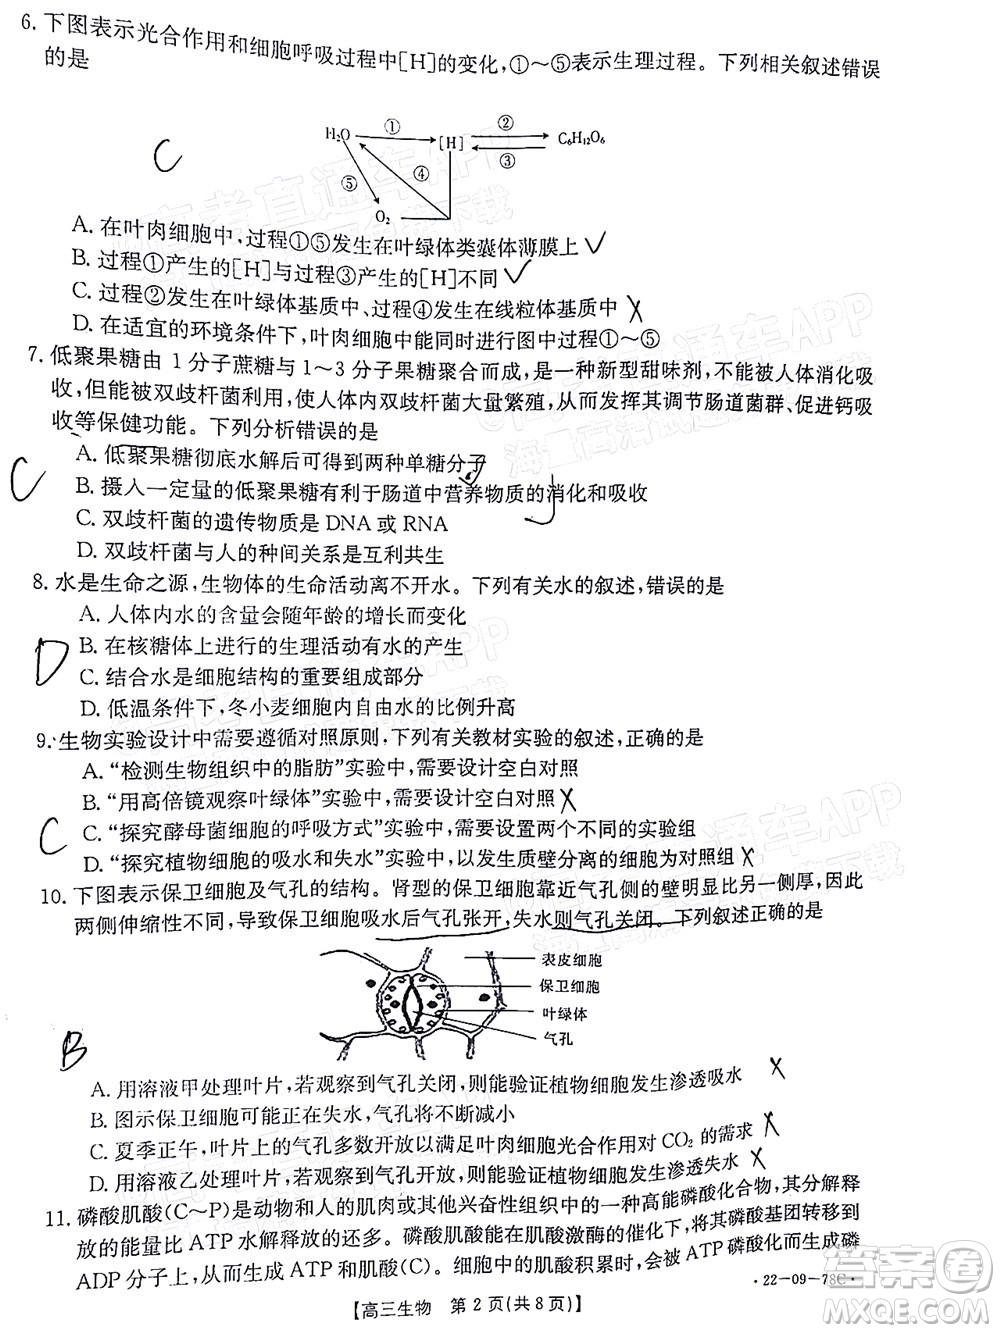 6. 下图表示光合作用和细胞呼吸过程中[H]的变化,①～⑤表示生理过程。下列相关叙述错误
的是
C
H₂O ① [H] ② C₆H₁₂O₆
③
④
⑤
O₂
A. 在叶肉细胞中,过程①⑤发生在叶绿体类囊体薄膜上
B. 过程①产生的[H]与过程③产生的[H]不同
C. 过程②发生在叶绿体基质中、过程④发生在线粒体基质中
D. 在适宜的环境条件下,叶肉细胞中能同时进行图中过程①～⑤
7. 低聚果糖由 1 分子蔗糖与 1～3 分子果糖聚合而成,是一种新型甜味剂,不能被人体消化吸
收,但能被双歧杆菌利用,使人体内双歧杆菌大量繁殖,从而发挥其调节肠道菌群、促进钙吸
收等保健功能。下列分析错误的是
A. 低聚果糖彻底水解后可得到两种单糖分子
C
B. 摄入一定量的低聚果糖有利于肠道中营养物质的消化和吸收
C. 双歧杆菌的遗传物质是 DNA 或 RNA
D. 双歧杆菌与人的种间关系是互利共生
8. 水是生命之源,生物体的生命活动离不开水。下列有关水的叙述,错误的是
A. 人体内水的含量会随年龄的增长而变化
B. 在核糖体上进行的生理活动有水的产生
D
C. 结合水是细胞结构的重要组成部分
D. 低温条件下,冬小麦细胞内自由水的比例升高
9. 生物实验设计中需要遵循对照原则,下列有关教材实验的叙述,正确的是
A. “检测生物组织中的脂肪”实验中,需要设计空白对照
B. “用高倍镜观察叶绿体”实验中,需要设计空白对照
C
C. “探究酵母菌细胞的呼吸方式”实验中,需要设置两个不同的实验组
D. “探究植物细胞的吸水和失水”实验中,第一次观察的结果为对照组
10. 下图表示保卫细胞及气孔的结构。肾型的保卫细胞靠近气孔侧的壁明显比另一侧厚,因此
两侧伸缩性不同,导致保卫细胞吸水后气孔张开,失水则气孔关闭。下列叙述正确的是
表皮细胞
保卫细胞
叶绿体
气孔
B
A. 用溶液甲处理叶片,若观察到气孔关闭,则能验证植物细胞发生渗透吸水
B. 图示保卫细胞可能正在失水,气孔将不断减小
C. 夏季正午,叶片上的气孔多数开放以满足叶肉细胞光合作用对 CO₂ 的需求
D. 用溶液乙处理叶片,若观察到气孔开放,则能验证植物细胞发生渗透失水
11. 磷酸肌酸(C～P)是动物和人的肌肉或其他兴奋性组织中的一种高能磷酸化合物,其分解释
放的能量比 ATP 水解释放的还多。磷酸肌酸能在肌酸激酶的催化下,将磷酸基团转移到
ADP 分子上,生成 ATP 和肌酸(C)。细胞中的肌酸积累时,又会被 ATP 磷酸化而生成磷
【高三生物 第 2 页(共 8 页)】
·22-09-78C·
答案圈
MXQE.COM